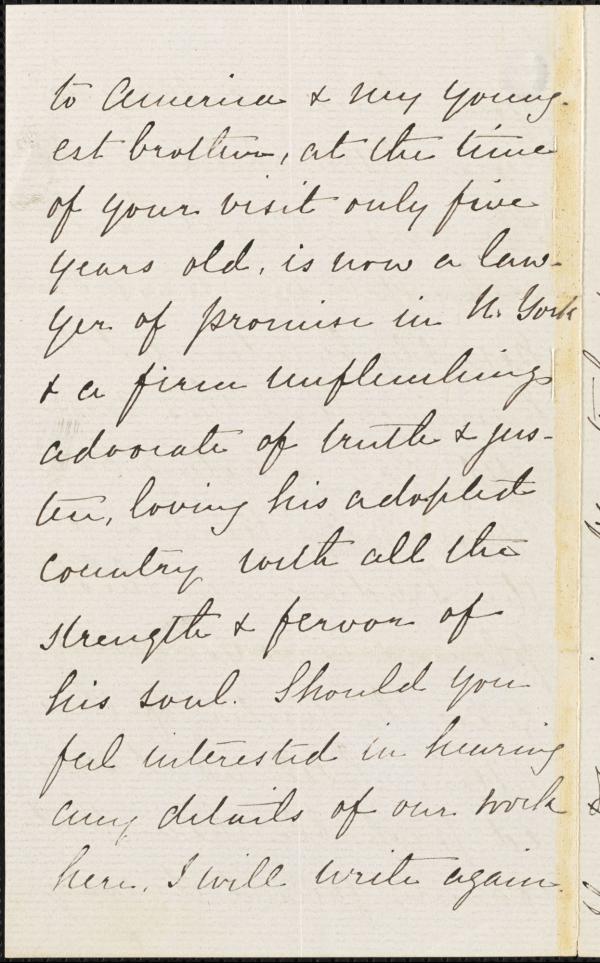 to America & my young-
est brother, at the time
of your visit only five
years old, is now a law-
yer of promise in N. York
& a firm unflinching
advocate of truth & jus-
tice, loving his adopted
country with all the
strength & fervor of
his soul. Should you
feel interested in hearing
any details of our work
here, I will write again.